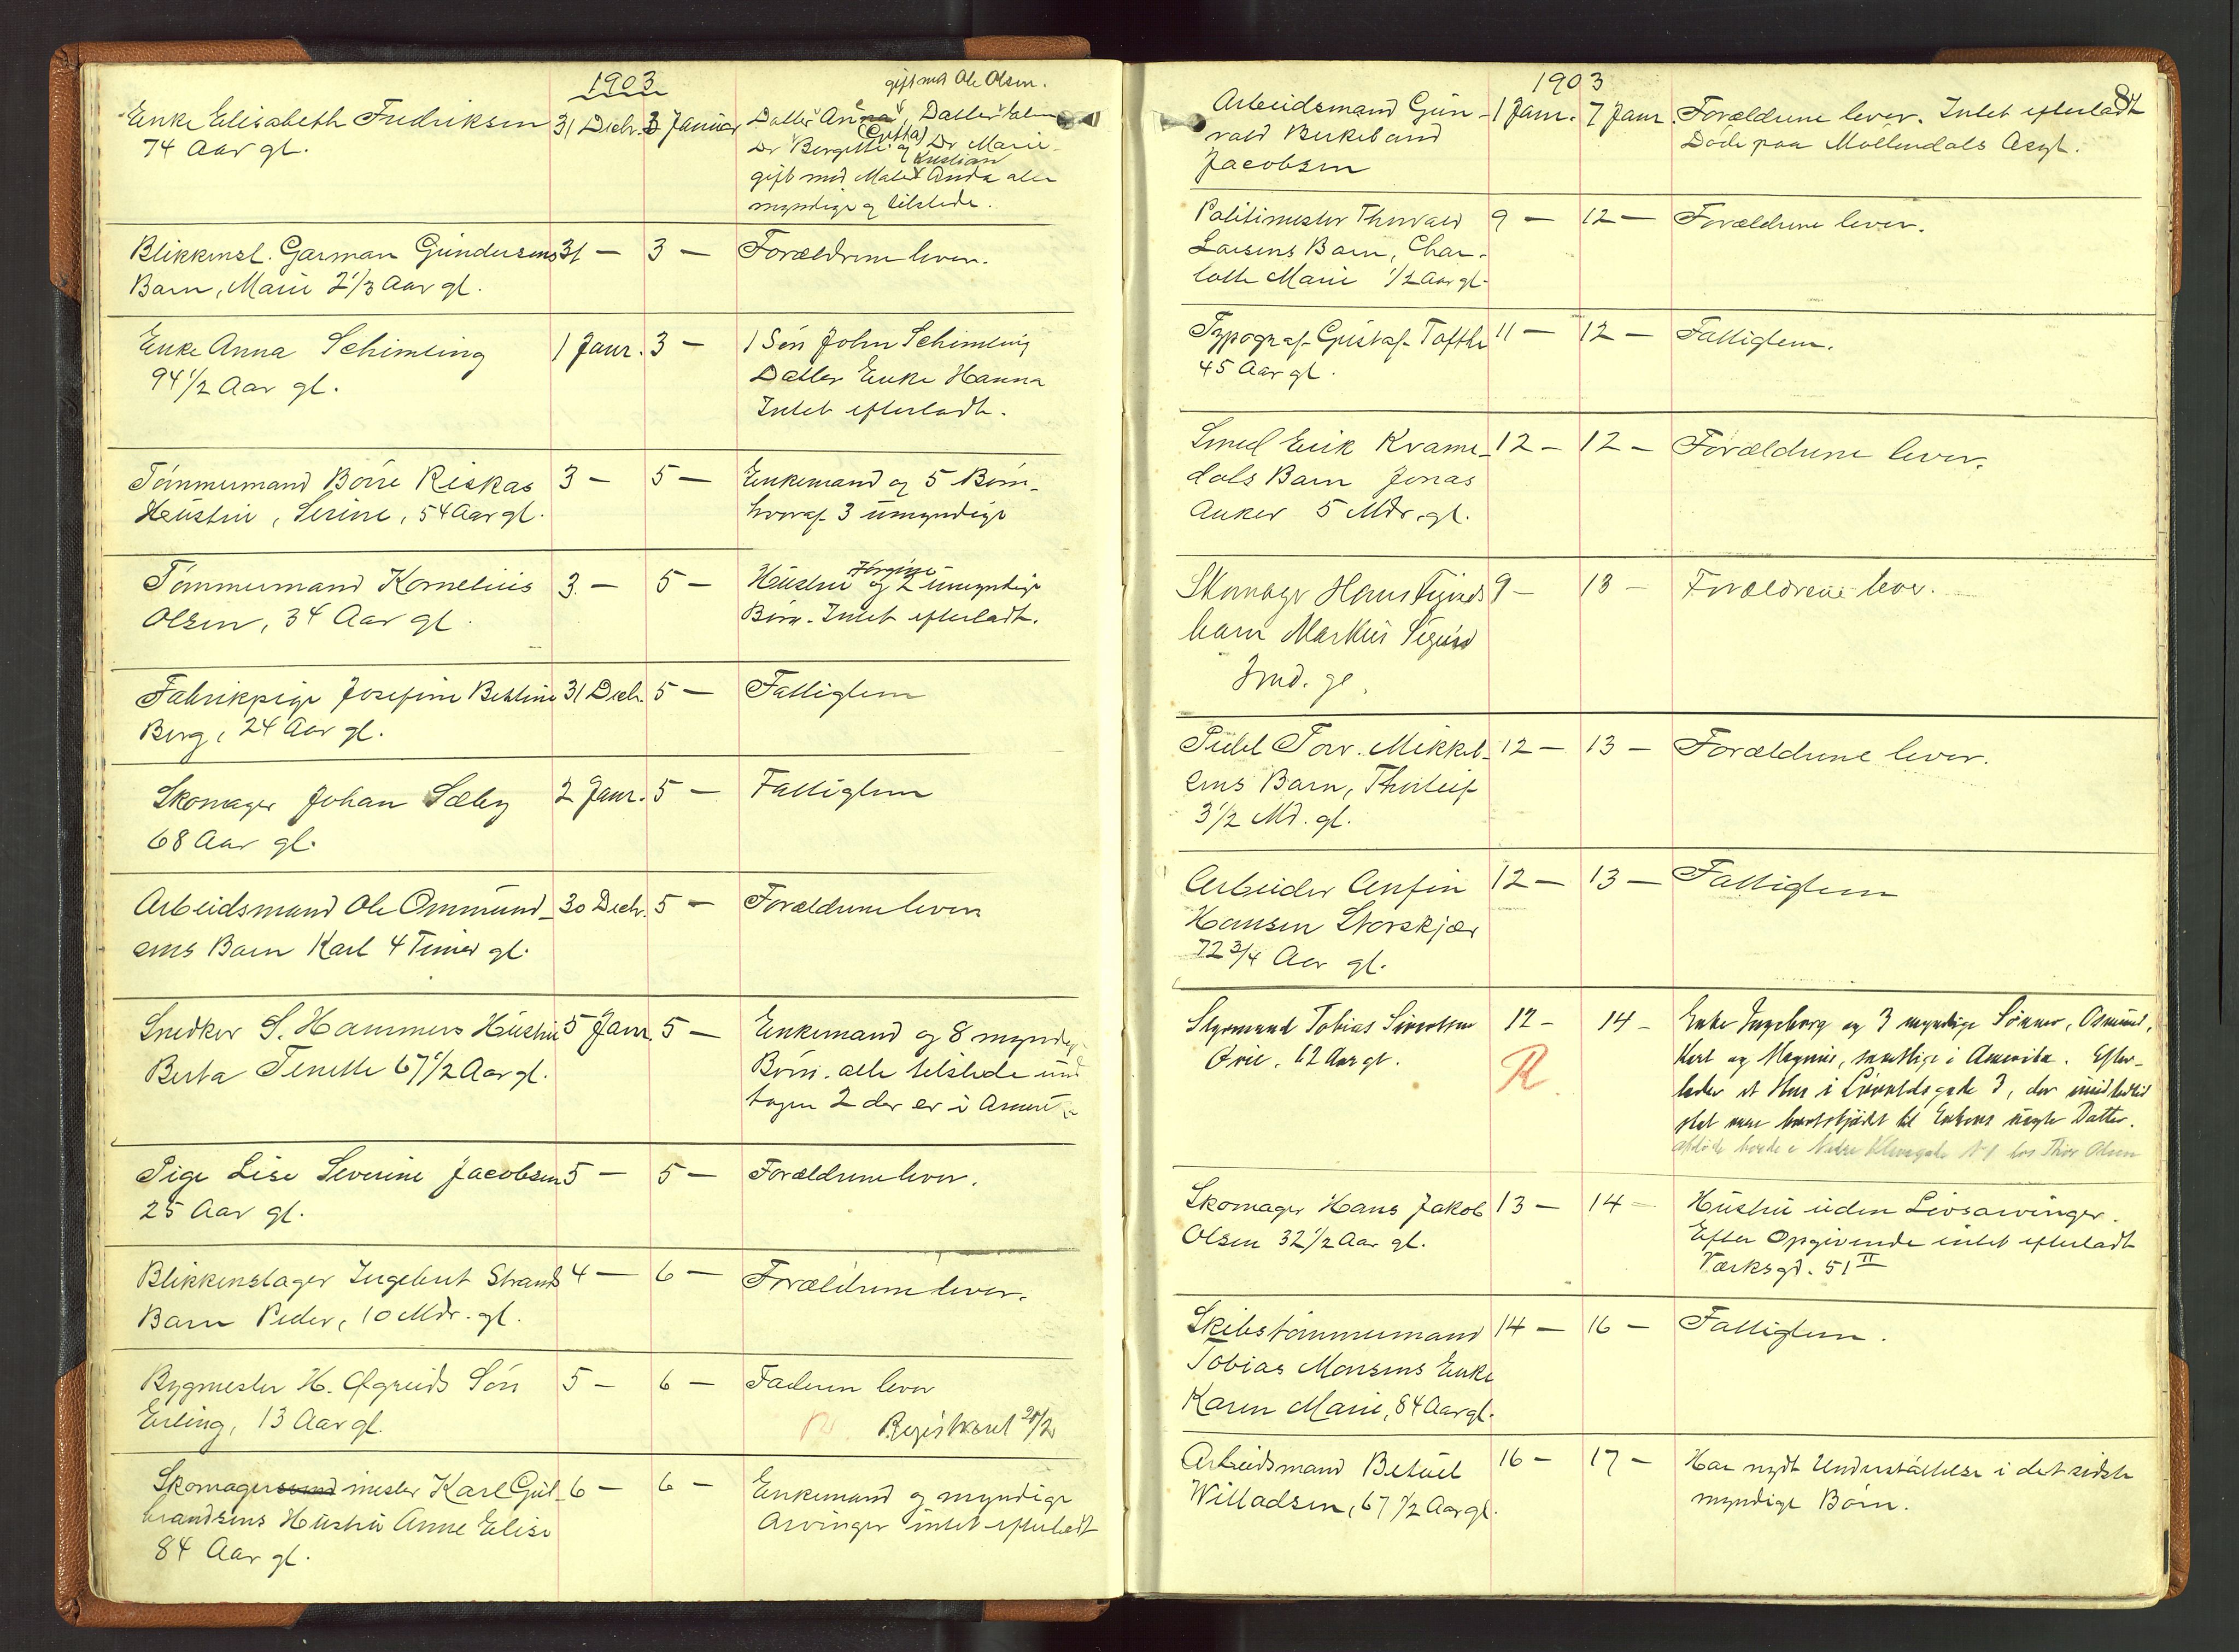 1903
gift med Ole Olsen.
Enke Elisabeth Fredriksen 31 Decbr. 3 Januar Datter Anna, Datter
74 Aar gl.
(Gustha)
Dr Bergitte og Dr Marie
Kristian
gift med Maler Anda alle
myndige og tilstede.
Blikkensl. Garman Gundersens 31 — 3 — Forældrene lever.
Barn, Marie 2 1/3 Aar gl.
Enke Anna Schimling 1 Janr. 3 — 1 Søn John Schimling
94 1/2 Aar gl. Datter Enke Hanna
Intet efterladt.
Tömmermand Börre Riskas 3 — 5 — Enkemand og 5 Börn
Hustru, Serine, 54 Aar gl. hvoraf 3 umyndige
Jörgine
Tömmermand Kornelius 3 — 5 — Hustru og 2 umyndige
Olsen, 34 Aar gl. Börn. Intet efterladt.
Fabrikpige Josefine Bertine 31 Decbr. 5 — Fattiglem
Berg, 24 Aar gl.
Skomager Johan Sæby 2 Janr. 5 — Fattiglem
68 Aar gl.
Arbeidsmand Ole Ommund- 30 Decbr. 5 — Forældrene lever
sens Barn Karl 4 Timer gl.
Snedker S. Hammers Hustru 5 Janr. 5 — Enkemand og 8 myndige
Berta Tenette 67 1/2 Aar gl. Börn. alle tilstede und
tagen 2 der er i Ameri
Pige Lise Severine Jacobsen 5 — 5 — Forældrene lever.
25 Aar gl.
Blikkenslager Ingebret Strands 4 — 6 — Forældrene lever.
Barn Peder, 10 Mdr. gl.
Bygmester H. Øgreids Sön 5 — 6 — Faderen lever
Erling, 13 Aar gl. R. Registreret 28/2
Skomagersvend mester Karl Gul- 6 — 6 — Enkemand og myndige
brandsens Hustru Anne Elise Arvinger intet efterladt
84 Aar gl.
1903
84
Arbeidsmand Gun- 1 Janr. 7 Janr. Forældrene lever. Intet efterladt
vald Birkeland Döde paa Möllendals Asyl.
Jacobsen
Politimester Thorvald 9 — 12 — Forældrene lever.
Larsens Barn, Char-
lotte Marie 1/2 Aar gl.
Typograf Gustaf Tofthe 11 — 12 — Fattiglem.
45 Aar gl.
Smed Erik Krame- 12 — 12 — Forældrene lever.
dals Barn Jonas
Anker 5 Mdr. gl.
Skomager Hans 9 — 13 — Forældrene lever.
barn Markus Sigurd
md. gl.
Torv. Mikkel- 12 — 13 — Forældrene lever.
sens Barn, Thorleif
3 1/2 Md. gl.
Arbeider Anfin 12 — 13 — Fattiglem
Hansen Storskjær
72 3/4 Aar gl.
Styrmand Tobias Sivertsen 12 — 14 — Enke Ingeborg og 3 myndige Sönner, Osmund,
Øvie, 62 Aar gl. R Karl og Magnus, samtlige i Amerika. Efter-
lader et Hus i Lövoldsgade 3, der imidlertid
skal være bortskjødet til Enkens uegte Datter.
afdöde boede i Nedre Klevegade No 1 hos Thor Olsen
Skomager Hans Jakob 13 — 14 — Hustru uden Livsarvinger.
Olsen 32 1/2 Aar gl. Efter Opgivende intet efterladt
Værksgd. 51 II
Skibstömmermand 14 — 16 — Fattiglem.
Tobias Monsens Enke
Karen Marie, 84 Aar gl.
Arbeidsmand Betuel 16 — 17 — Har nydt Understöttelse i det sidste
Willadsen, 67 1/2 Aar gl. myndige Börn.